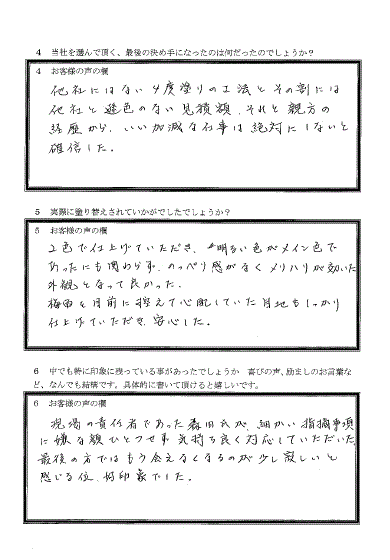 4 当社を選んで頂く、最後の決め手になったのは何だったのでしょうか？
4 お客様の声の欄
他社にはない4度塗りの工法とその割には
他社と遜色のない見積額、それと親方の
経歴から、いい加減な仕事は絶対にしないと
確信した。
5 実際に塗り替えされていかがでしたでしょうか？
5 お客様の声の欄
2色で仕上げていただき、明るい色がメイン色で
あったにも関わらず、のっぺり感がなくメリハリが効いた
外観となって良かった。
梅雨を目前に控えて心配していた目地もしっかり
仕上げていただき、安心した。
6 中でも特に印象に残っている事があったでしょうか 喜びの声、励ましのお言葉な
ど、なんでも結構です。具体的に書いて頂けると嬉しいです。
6 お客様の声の欄
現場の責任者であった森田氏が、細かい指摘事項
に嫌な顔ひとつせず気持ち良く対応していただいた。
最後の方ではもう会えなくなるのが少し寂しいと
感じる位、好印象でした。